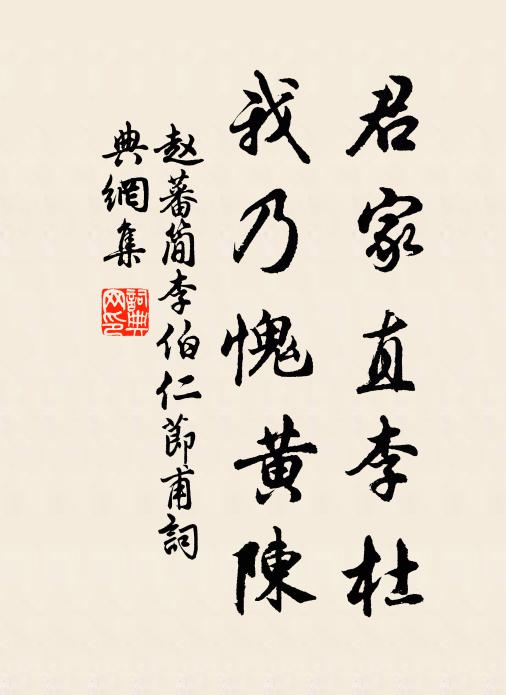 君家直李杜
我乃愧黄陳
赵蕃简李伯仁節甫詞
典網集
詞典
网印